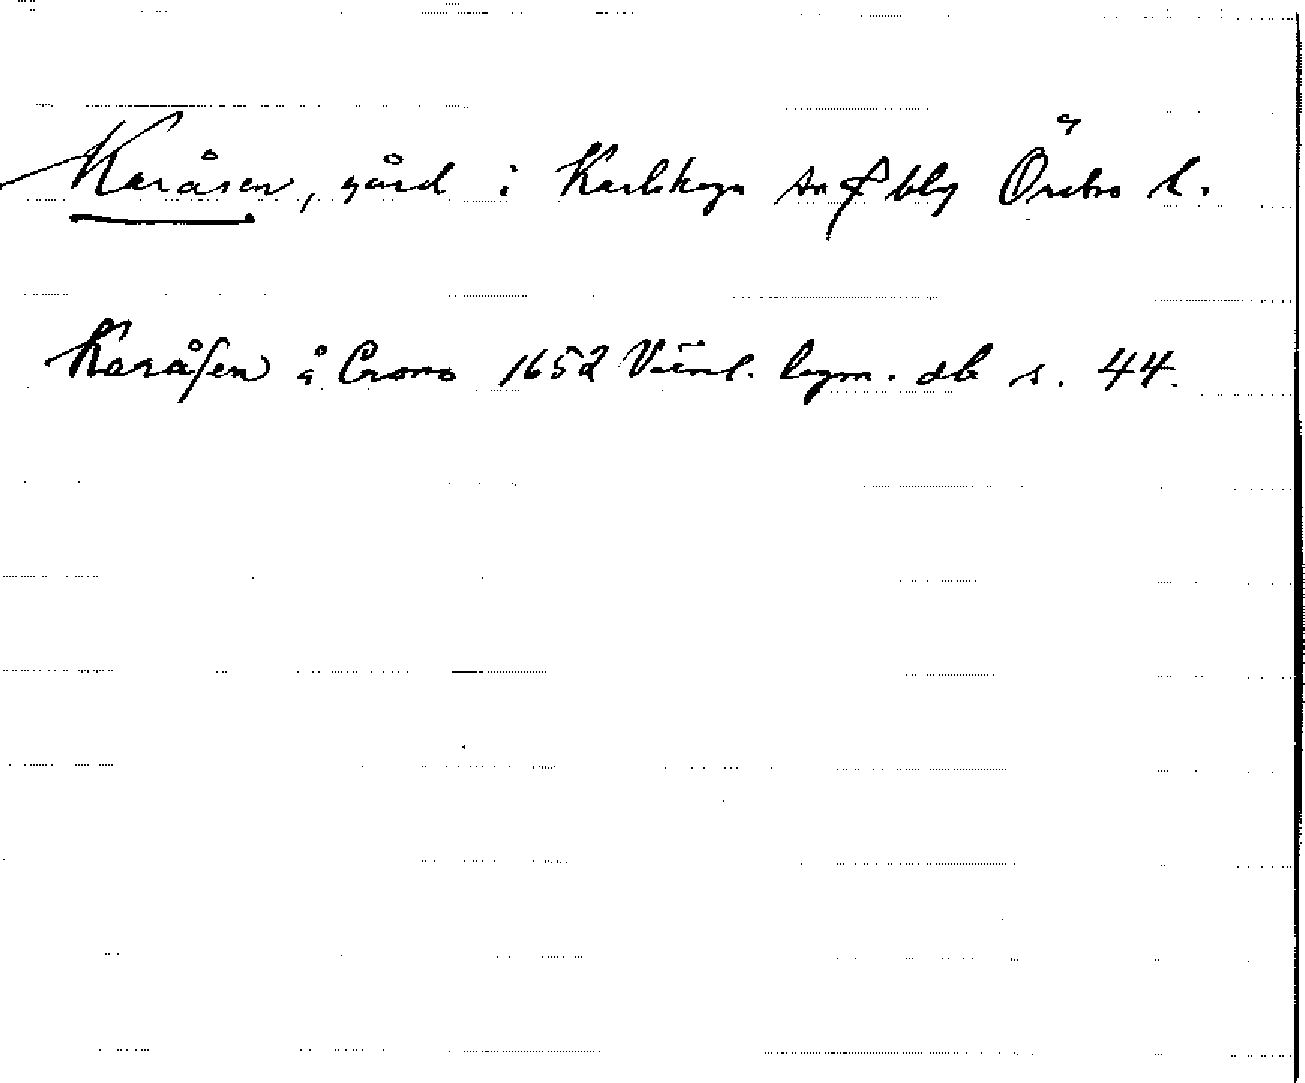 Karåsen, gård i Karlskoga sn o blg Örebro l.
Karåſen å Crono 1652 Värml. lagm. db s. 44.